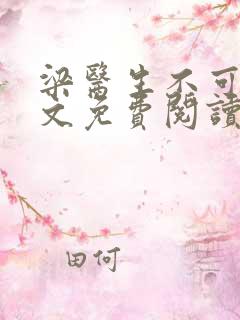 梁醫生不可
文免費閱讀
田何